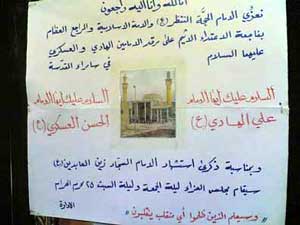 انا لله وانا اليه راجعون
نعزي الامام الحجة المنتظر (ع) والامة الاسلامية والمراجع العظام
بفاجعة الاعتداء الاثيم على مرقد الامامين الهادي والعسكري
عليهما السلام
في سامراء المقدسة
السلام عليك أيها الامام
علي الهادي (ع)
السلام عليك أيها الامام
الحسن العسكري (ع)
وبمناسبة ذكرى استشهاد الامام السجاد زين العابدين (ع)
سيقام مجلس العزاء ليلة الجمعة وليلة السبت ٢٥ محرم الحرام
الادارة
« وسيعلم الذين ظلموا أي منقلب ينقلبون »